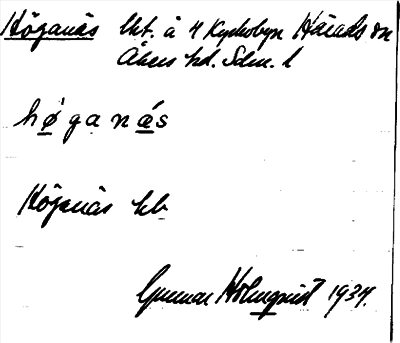 Höganäs lht. å 4 Kyrkobyn Härads sn
Åkers hd. Sdm. l
høganás
Höganäs hb
Gunnar Holmquist 1934.